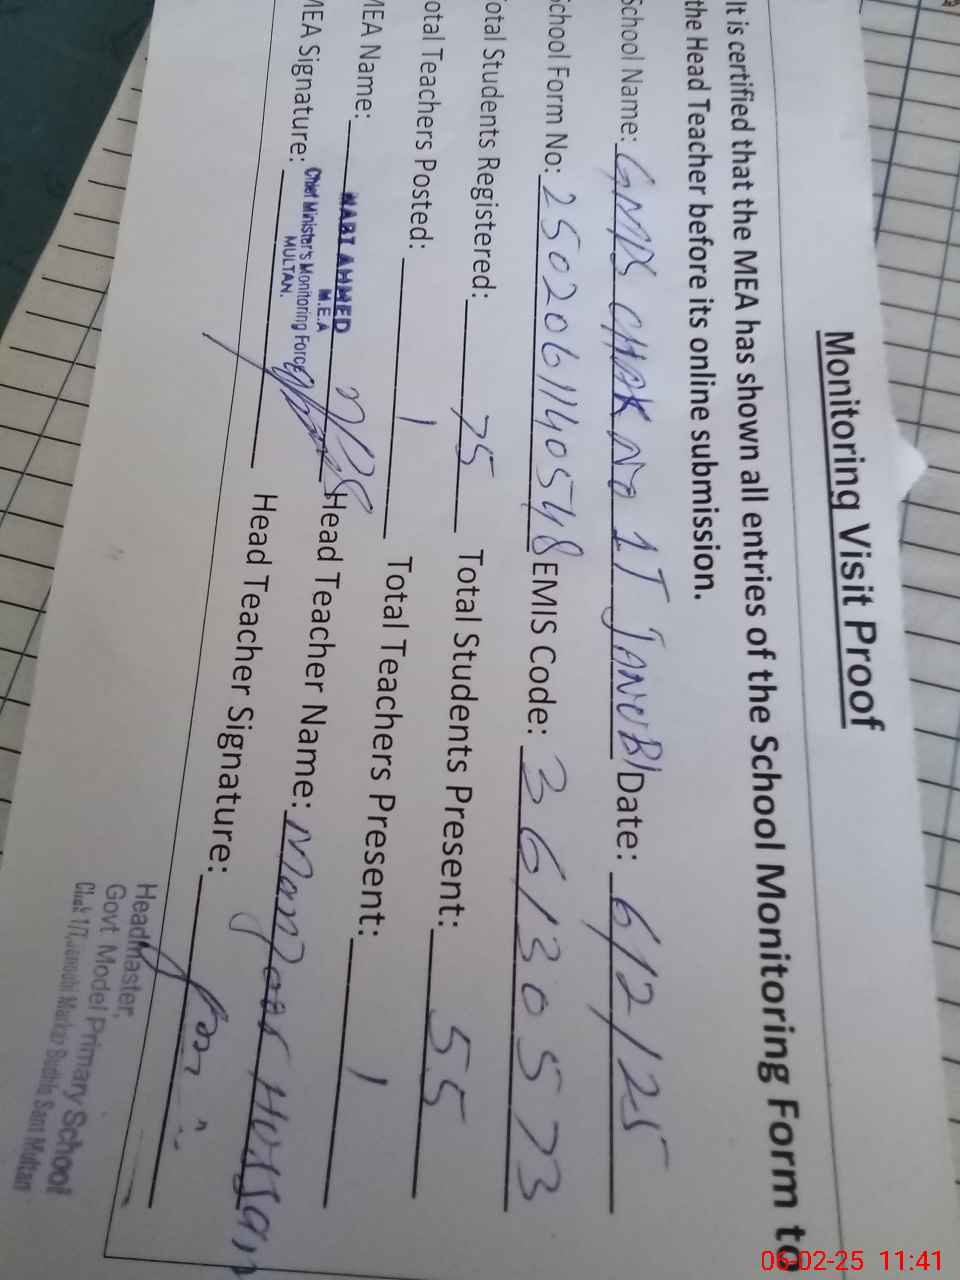 Monitoring Visit Proof
It is certified that the MEA has shown all entries of the School Monitoring Form to
the Head Teacher before its online submission.
School Name: GMPS CHAK NO 1T JANUBI Date: 6/2/25
School Form No: 2502061140548 EMIS Code: 36130573
Total Students Registered: 75 Total Students Present: 55
Total Teachers Posted: 1 Total Teachers Present: 1
MEA Name: NABI AHMED Head Teacher Name: Manzoor Hussain
M.E.A
Chief Minister's Monitoring Force
MULTAN.
MEA Signature: Head Teacher Signature:
Headmaster,
Govt. Model Primary School
Chak 1/T Janoobi Markaz Budhla Sant Multan
06-02-25 11:41